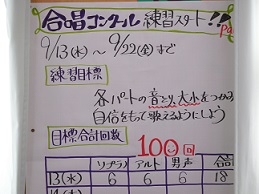 合唱コンクール 練習スタート!!
9/13(水)〜9/22(金)まで
練習目標
各パートの音とり、大小をつかみ
自信をもって歌えるようにしよう
目標合計回数 100回
ソプラノ アルト 男声 合計
13(水) 6 6 6 18